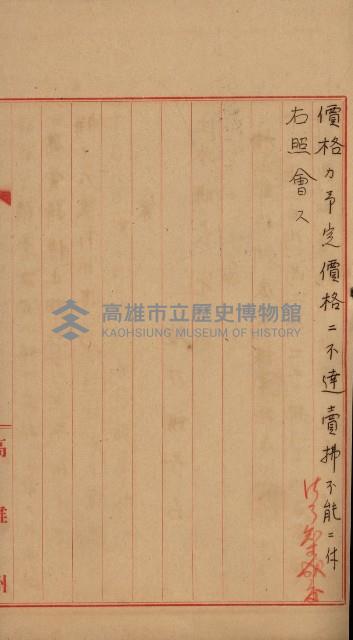 價格カ予定價格ニ不達賣拂不能ニ付
右照會ス
高雄市立歷史博物館
KAOHSIUNG MUSEUM OF HISTORY
高雄州